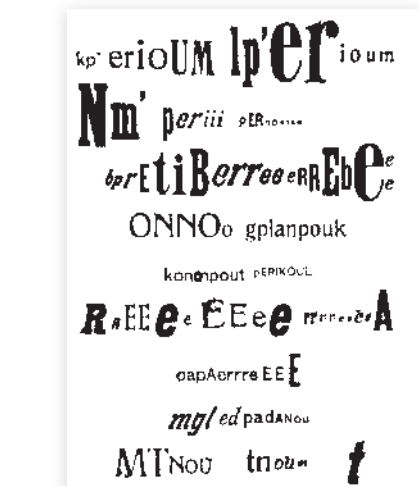 kp' erioUM lp'er ioum
Nm' periii pERnounnn
bprEtiBerree eRREbEe e e
ONNOo gplanpouk
konmpout pERIKOUL
RrEEe e EEee rrrrrrreeA
oapAerrre EEE
mgl ed padANou
MTNou tnoum t